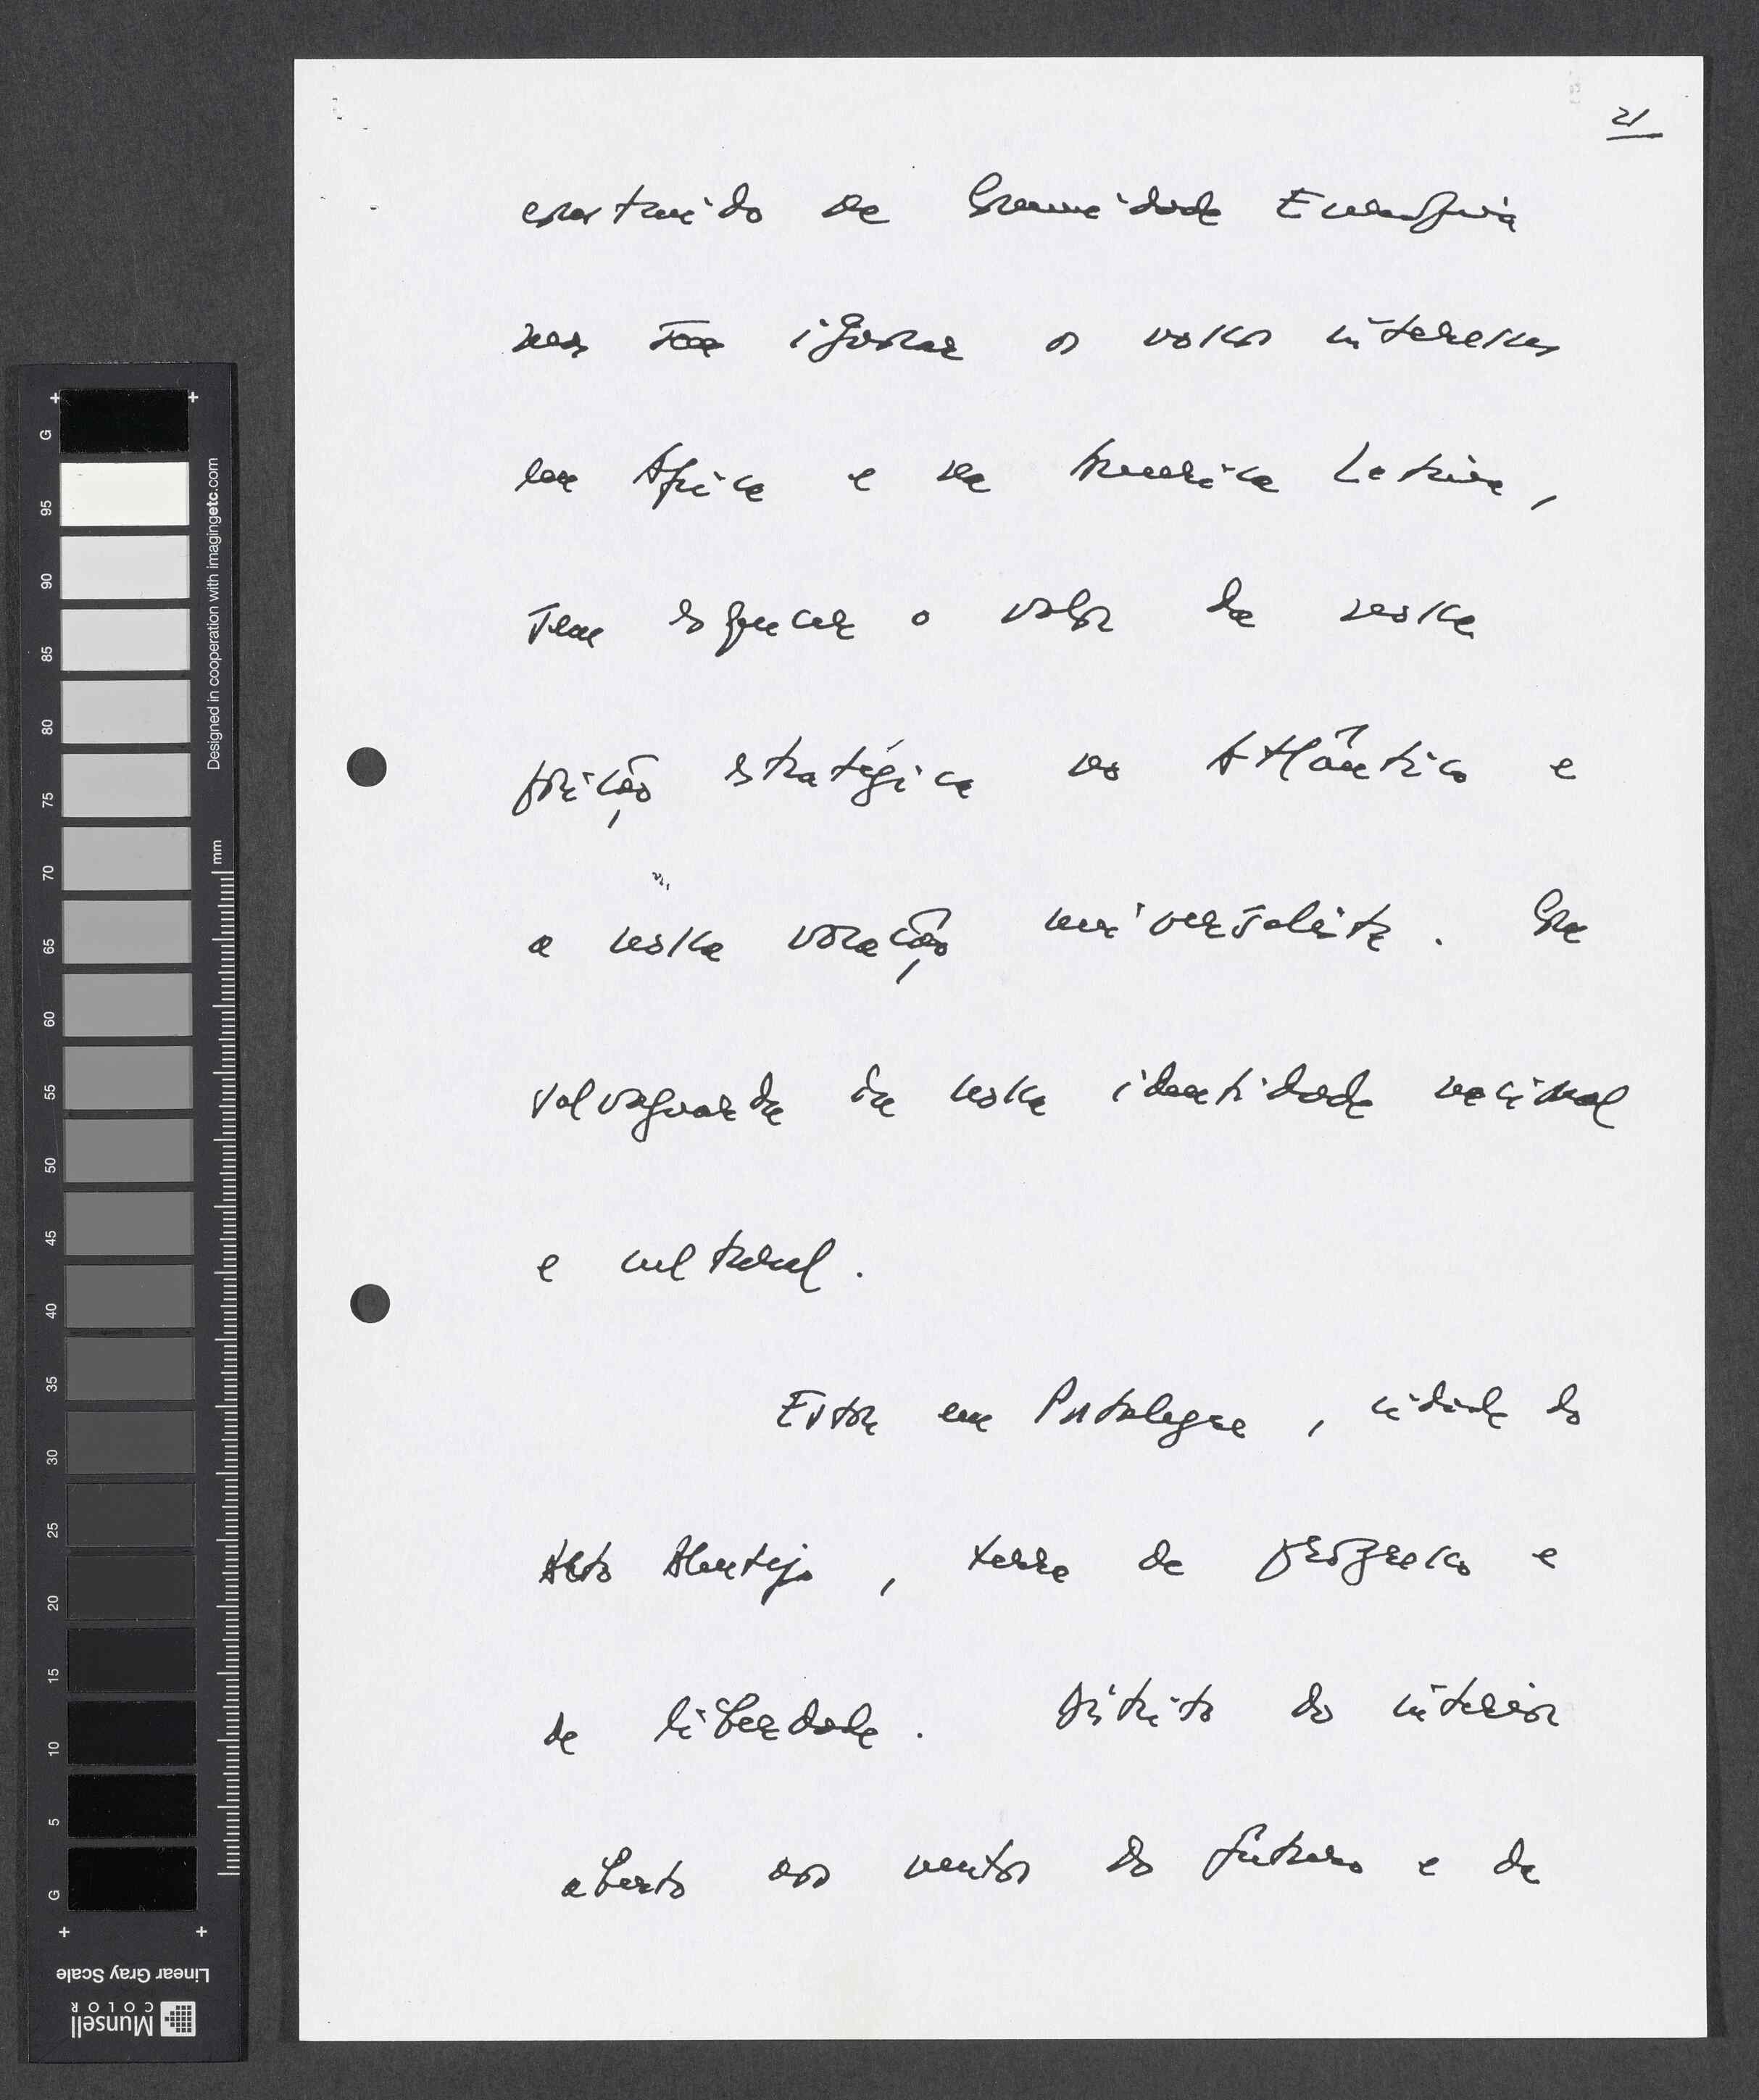 21
construído na Comunidade Europeia
mas sem ignorar os nossos interesses
em África e na América Latina,
sem esquecer o valor da nossa
posição estratégica no Atlântico e
a nossa vocação universalista. Na
salvaguarda da nossa identidade nacional
e cultural.
Estar em Portalegre, cidade do
Alto Alentejo, terra de progresso e
de liberdade. Distrito do interior
aberto aos ventos do futuro e da
+ +
G
95
90
85
80
75
70
65
60
55
50
45
40
35
30
25
20
15
10
5
G
+ +
Designed in cooperation with imagingetc.com
mm
Linear Gray Scale
Munsell
COLOR